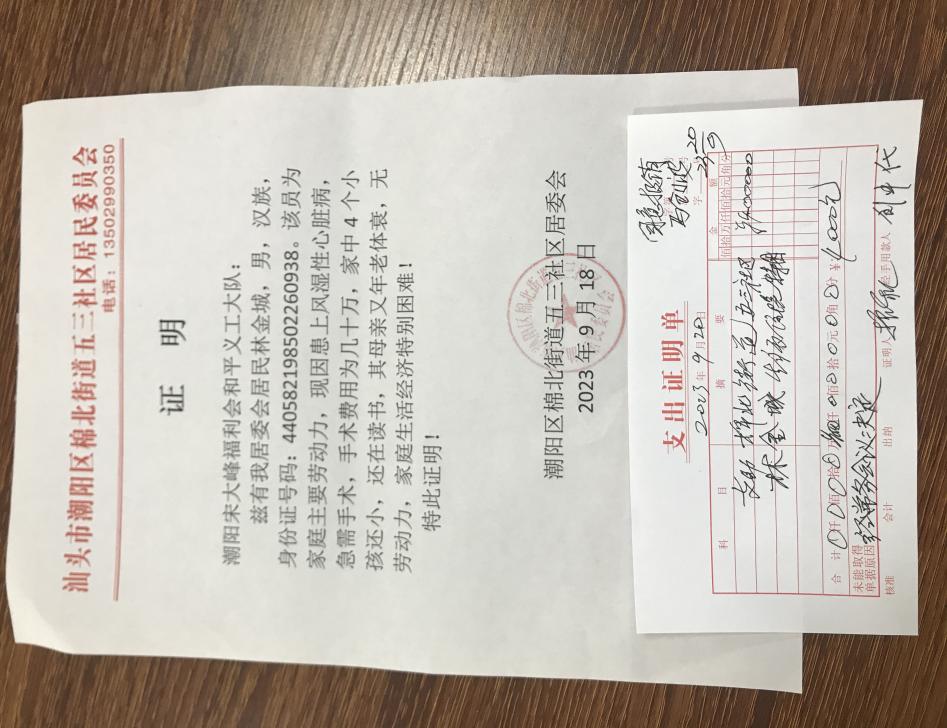 汕头市潮阳区棉北街道五三社区居民委员会
电话：13502990350
证 明
潮阳宋大峰福利会和平义工大队：
兹有我居委会居民林金城，男，汉族，
身份证号码：440582198502260938。该员为
家庭主要劳动力，现因患上风湿性心脏病，
急需手术，手术费用为几十万，家中 4 个小
孩还小，还在读书，其母亲又年老体衰，无
劳动力，家庭生活经济特别困难！
特此证明！
潮阳区棉北街道五三社区居委会
2023 年 9 月 18 日
支出证明单
2023 年 9 月 20 日
科 目 摘 要 金 额
佰拾万仟佰拾元角分
棉北街道五三社区
林金城
合 计 仟 佰 拾 仟 佰 拾 元 角 分 ¥ 4000元
未能取得
单据原因 经常务会议决定
核准 会计 出纳 证明人 经手用款人